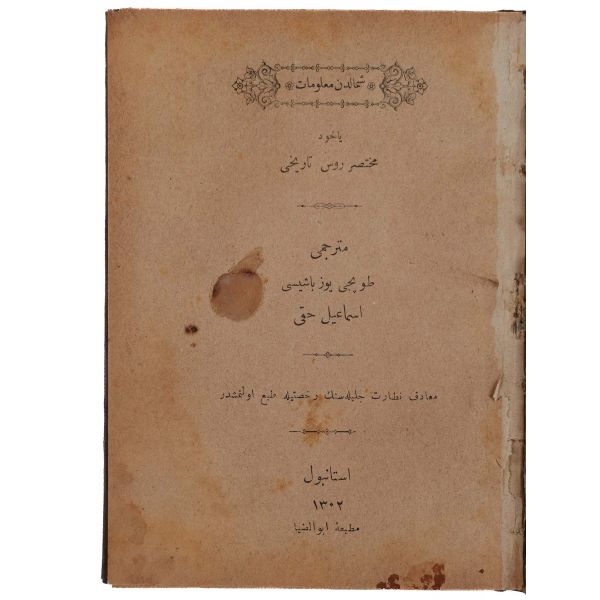 شمالدن معلومات
ياخود
مختصر روس تاريخى
مترجمى
طوپچى يوزباشيسى
اسماعيل حقى
معارف نظارت جليله‌سنك رخصتيله طبع اولنمشدر
استانبول
١٣٠٢
مطبعهٔ ابوالضيا